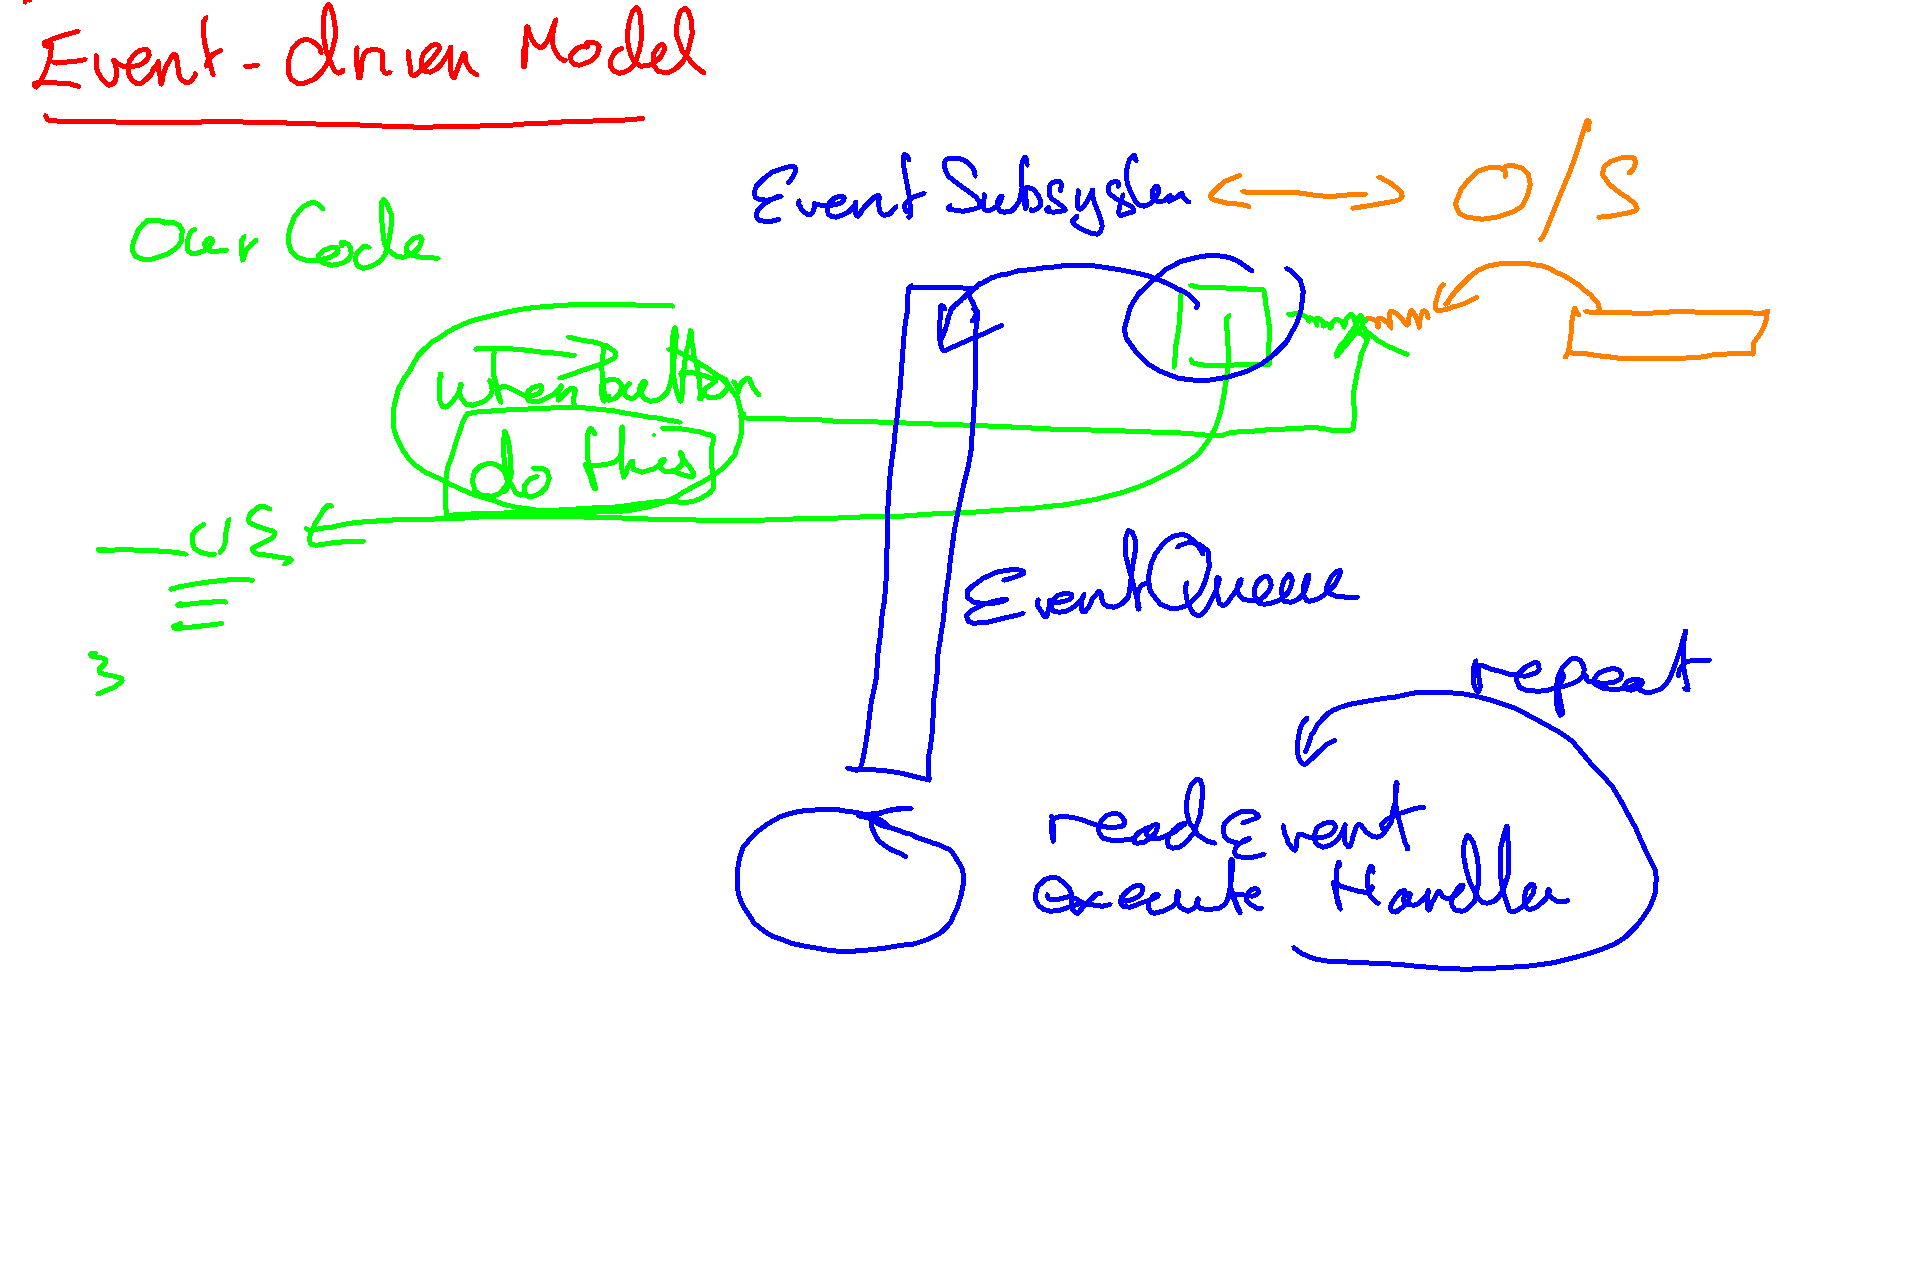 Event-driven Model
Event Subsystem O/S
Our Code
when button
do this
() {
}
Event Queue
repeat
read Event
execute Handler